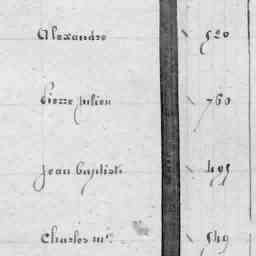 Alexandre 520
Pierre Julien 760
Jean baptiste 495
Charles mc 549